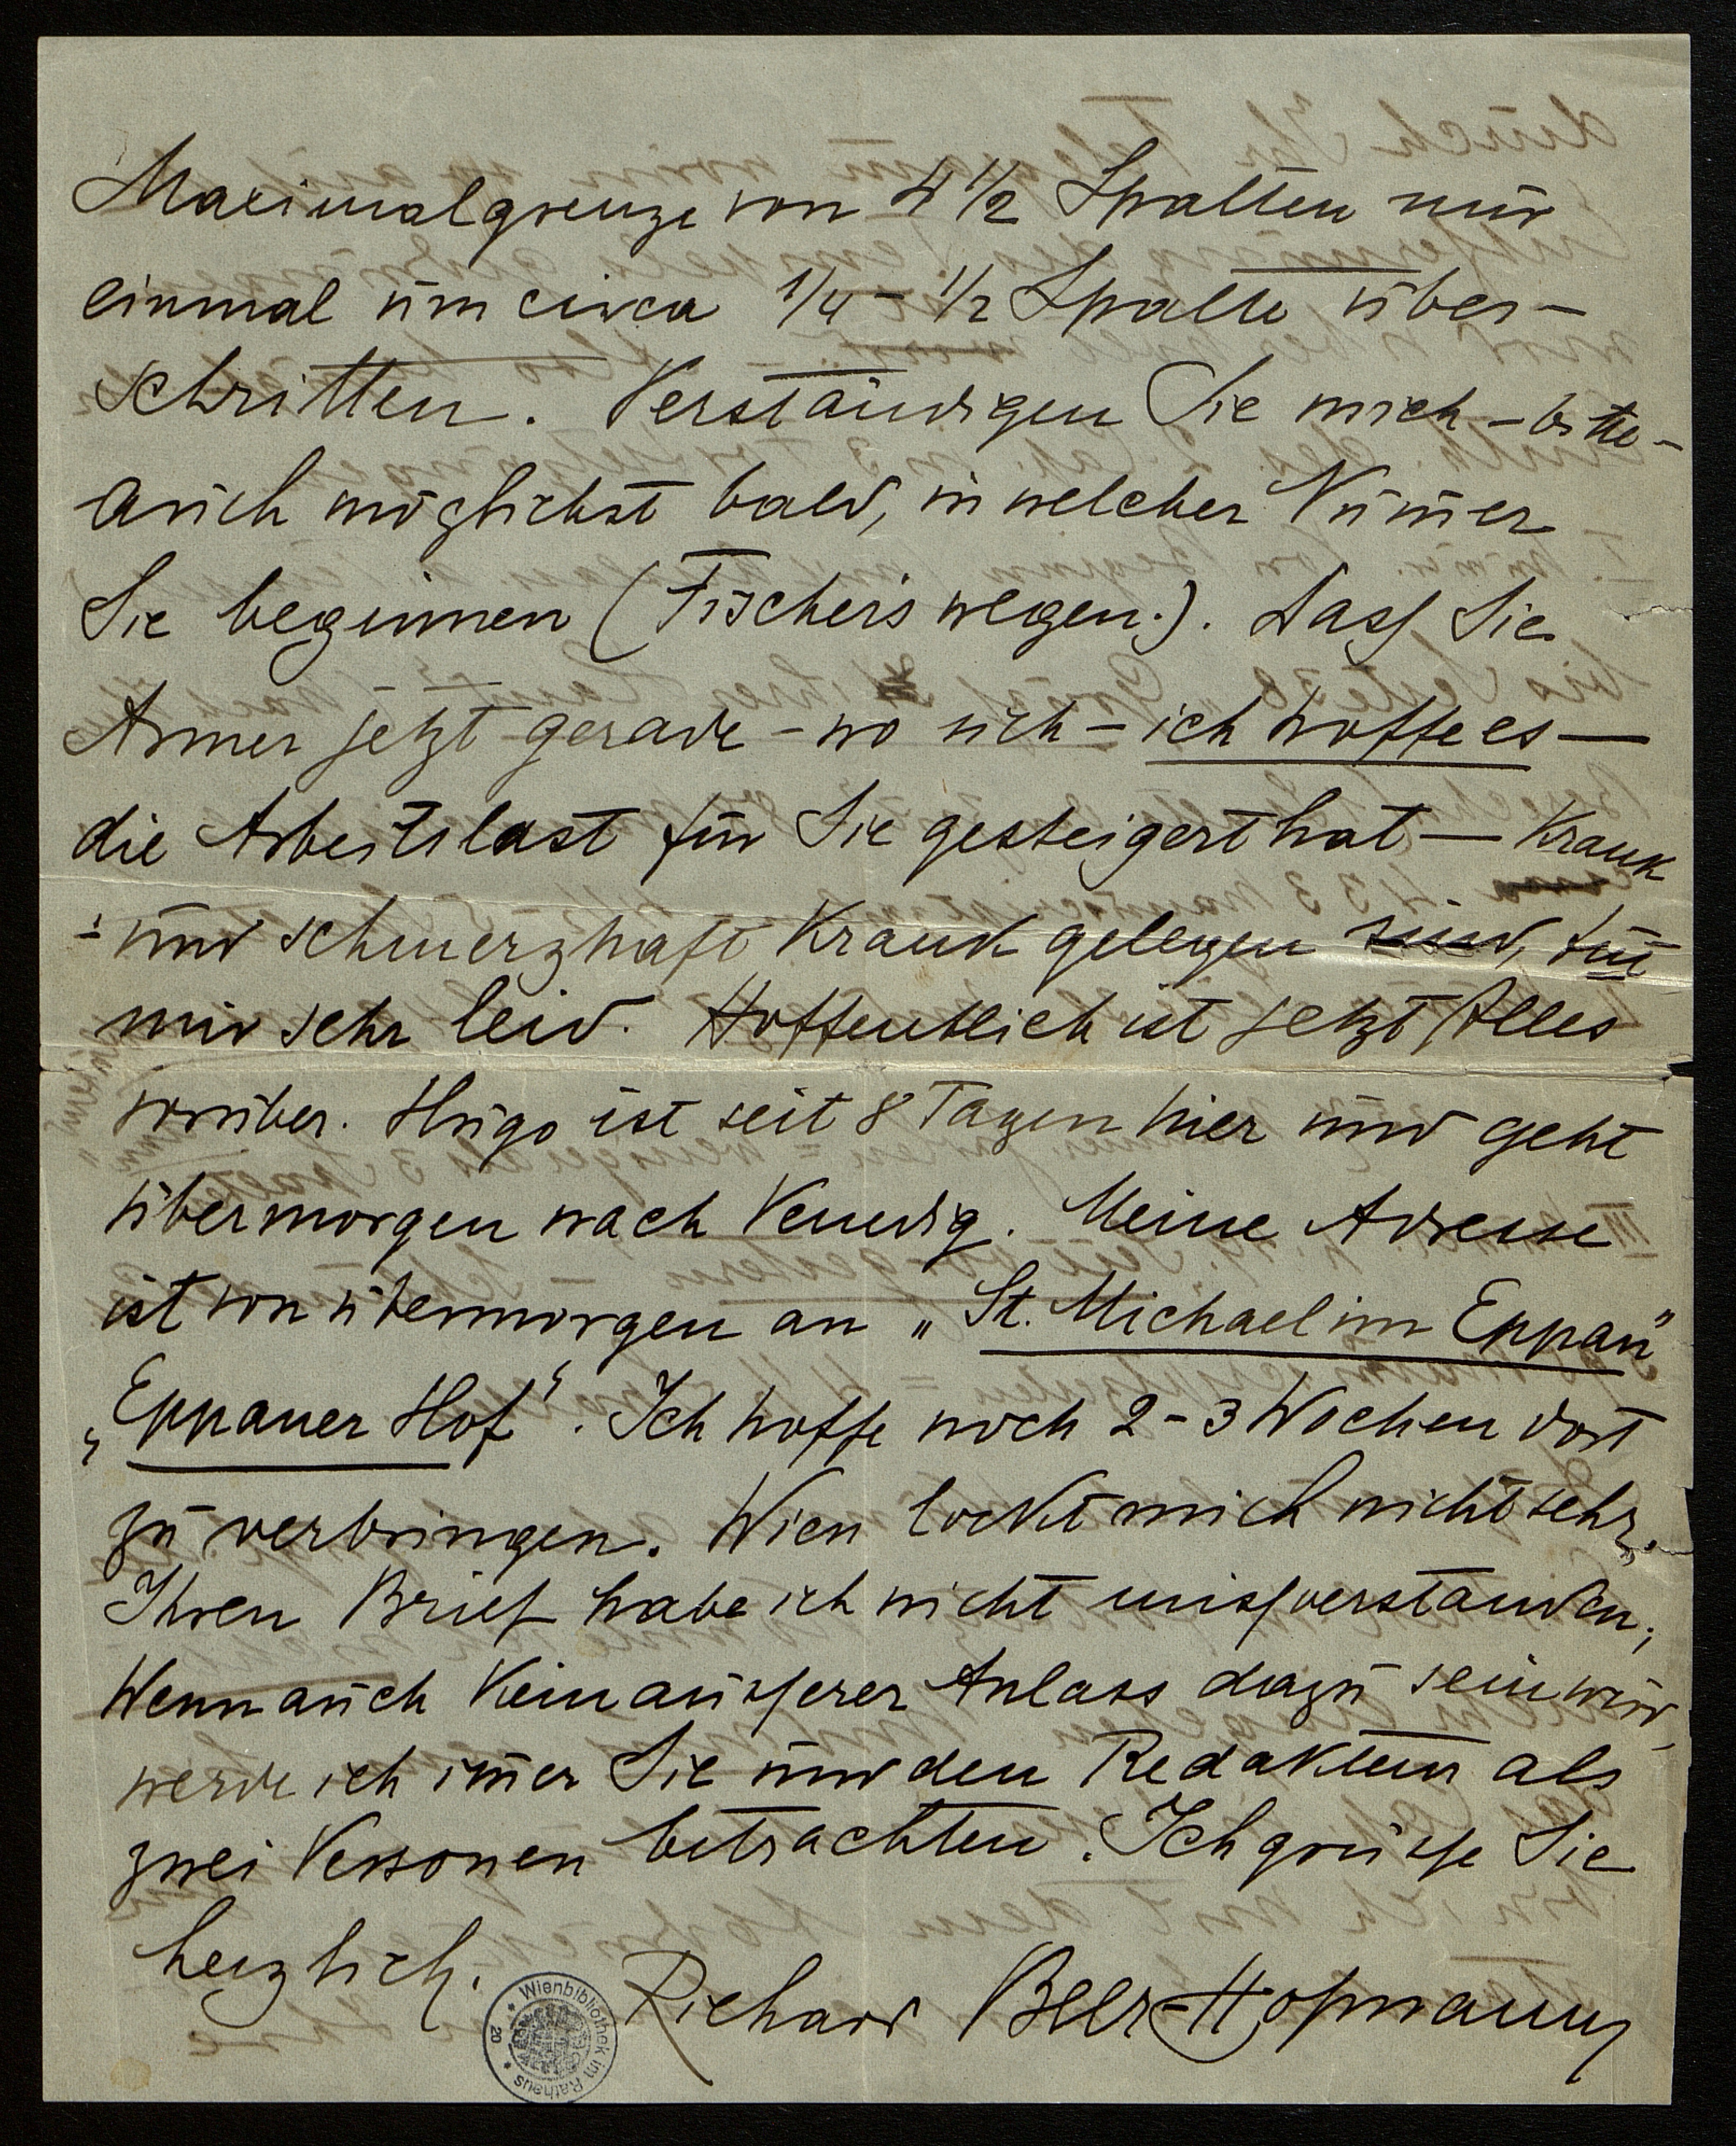 Maximalgrenze von 4 1/2 Spalten nur
einmal um circa 1/4 – 1/2 Spalte über-
schritten. Verständigen Sie mich – bitte –
auch möglichst bald, in welcher Num̄er
Sie beginnen (Fischers wegen.). Dass Sie
Armer jetzt gerade – wo sich – ich hoffe es –
die Arbeitslast für Sie gesteigert hat – krank
– und schmerzhaft krank gelegen sind, tut
mir sehr leid. Hoffentlich ist jetzt Alles
vorüber. Hugo ist seit 8 Tagen hier und geht
übermorgen nach Venedig. Meine Adresse
ist von übermorgen an „St. Michael im Eppan"
„Eppaner Hof". Ich hoffe noch 2–3 Wochen dort
zu verbringen. Wien lockt mich nicht sehr.
Ihren Brief habe ich nicht missverstanden;
Wenn auch kein äusserer Anlass dazu sein wird,
werde ich im̄er Sie und den Redakteur als
zwei Personen betrachten. Ich grüsse Sie
herzlich.
Richard Beer-Hofmann
Wienbibliothek im Rathaus
20